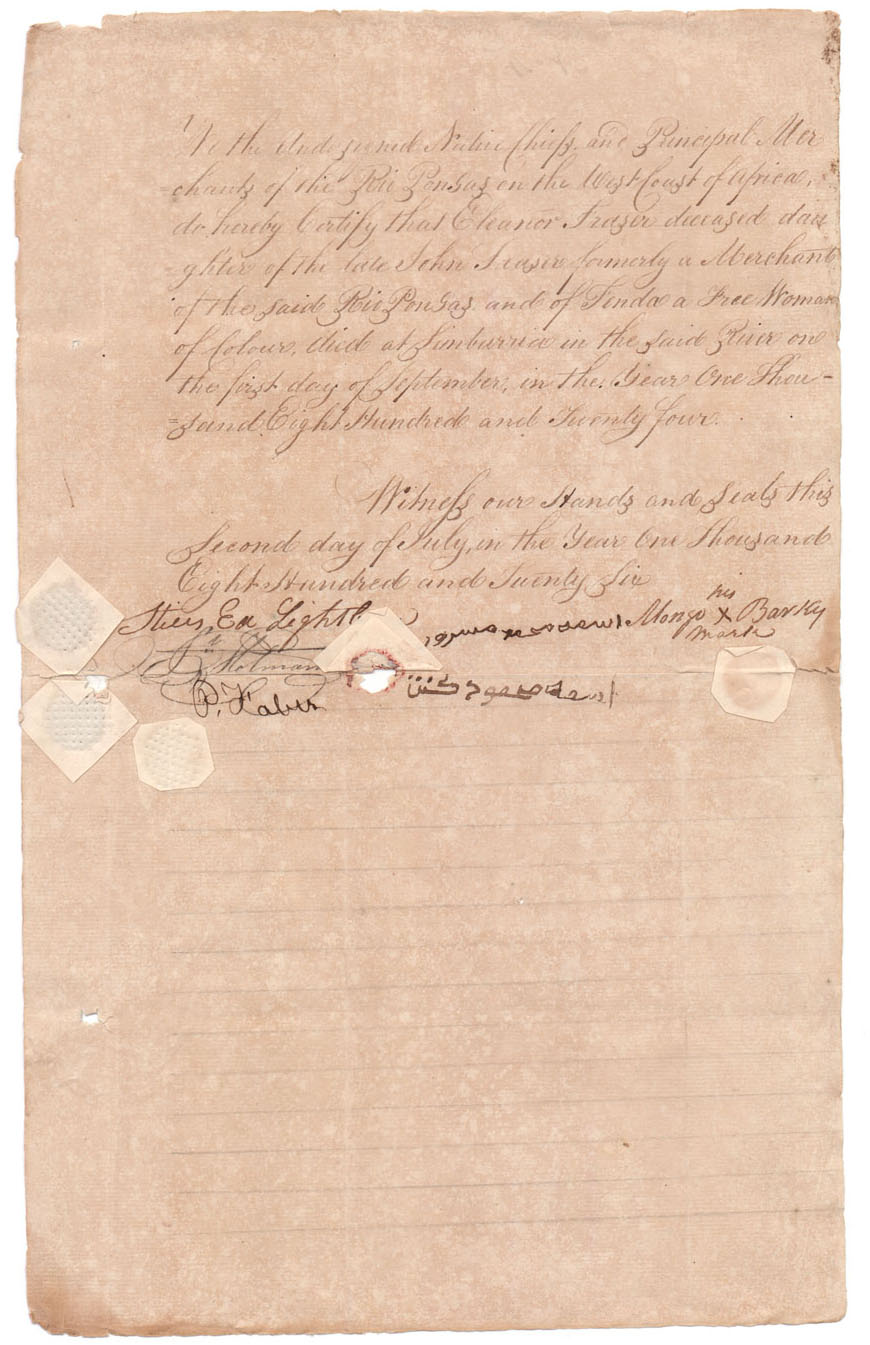 We the Undersigned Native Chiefs and Principal Mer
=chants of the Rio Pongas on the West Coast of Africa,
do hereby Certify that Eleanor Fraser deceased dau
=ghter of the late John Fraser formerly a Merchant
of the said Rio Pongas and of Fenda a Free Woman
of Colour, died at in the said River on
the first day of September, in the Year One Thou-
=sand Eight Hundred and Twenty four.
Witness our Hands and Seals this
Second day of July, in the Year One Thousand
Eight Hundred and Twenty Six
Stiles Ed Lightb
اسمه محمد
Mongo his X mark Barky
Holman
P. Faber
اسمه محمود